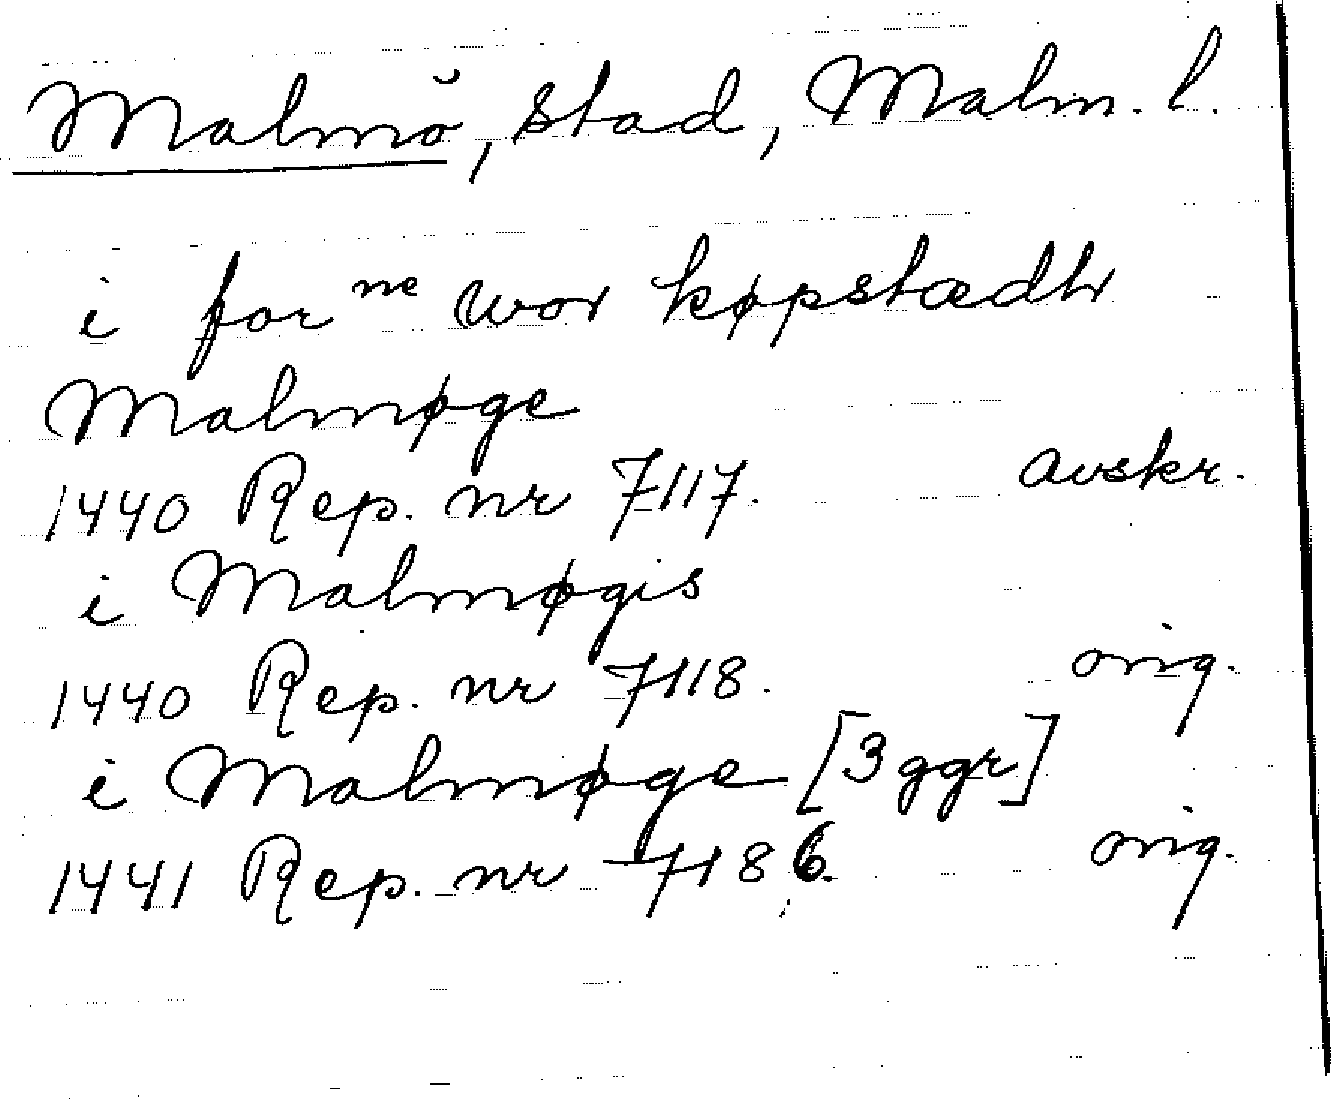 Malmö, stad, Malm. l.
i for ne wor køpstædh
Malmøge
1440 Rep. nr 7117. avskr.
i Malmøgis
1440 Rep. nr 7118. orig.
i Malmøge [3 ggr]
1441 Rep. nr 7186. orig.